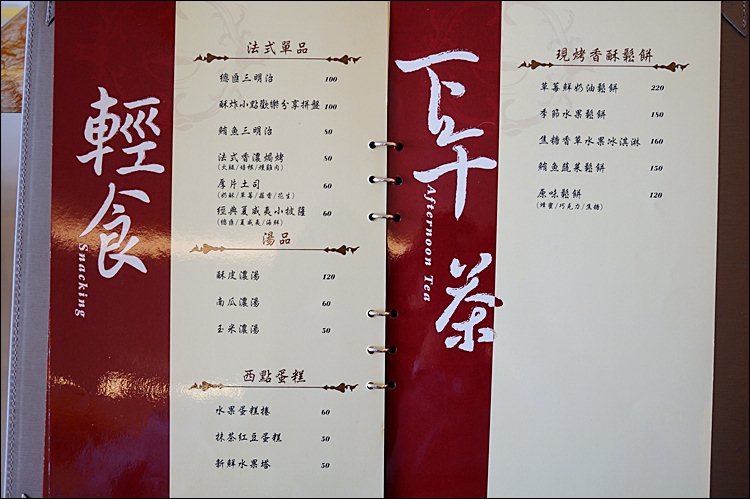 輕食
Snacking
法式單品
總匯三明治 100
酥炸小點歡樂分享拼盤 100
鮪魚三明治 80
法式香濃焗烤 80
(火腿/培根/燻雞肉)
厚片土司 60
(奶酥/草莓/蒜香/花生)
經典夏威夷小披薩 60
(總匯/夏威夷/海鮮)
湯品
酥皮濃湯 120
南瓜濃湯 60
玉米濃湯 50
西點蛋糕
水果蛋糕捲 60
抹茶紅豆蛋糕 50
新鮮水果塔 50
下午茶
Afternoon Tea
現烤香酥鬆餅
草莓鮮奶油鬆餅 220
季節水果鬆餅 180
焦糖香草水果冰淇淋 160
鮪魚蔬菜鬆餅 150
原味鬆餅 120
(蜂蜜/巧克力/焦糖)